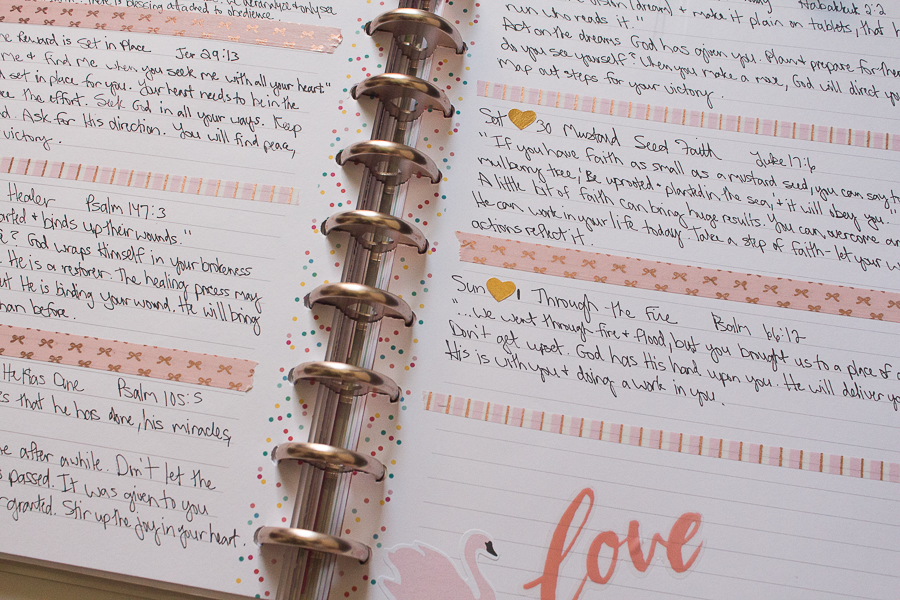 There is blessing attached to obedience.
Reward is Set in Place Jer 29:13
me & find me when you seek me with all your heart"
d set in place for you. Your heart needs to be in the
the effort. Seek God in all your ways. Keep
d. Ask for His direction. You will find peace,
victory.
Healer Psalm 147:3
arted & binds up their wounds."
? God wraps Himself in your brokeness
. He is a restorer. The healing process may
but He is binding your wound. He will bring
han before.
He Has Done Psalm 105:5
s that he has done, his miracles,
e after awhile. Don't let the
s passed. It was given to you
r granted. Stir up the joy in your heart.
Habakkuk 2:2
vision (dream) & make it plain on tablets, that
run who reads it."
Act on the dreams God has given you. Plan & prepare for them
do you see yourself? When you make a move, God will direct you
map out steps for your victory.
Sat 30 Mustard Seed Faith Luke 17:6
"If you have faith as small as a mustard seed, you can say to
mulberry tree; Be uprooted & planted in the sea, & it will obey you."
A little bit of faith can bring huge results. You can overcome an
He can work in your life today. Take a step of faith - let your w
actions reflect it.
Sun 1 Through the Fire Psalm 66:12
"...We went through fire & flood, but you brought us to a place of a
Don't get upset. God has His hand upon you. He will deliver yo
His is with you & doing a work in you.
love